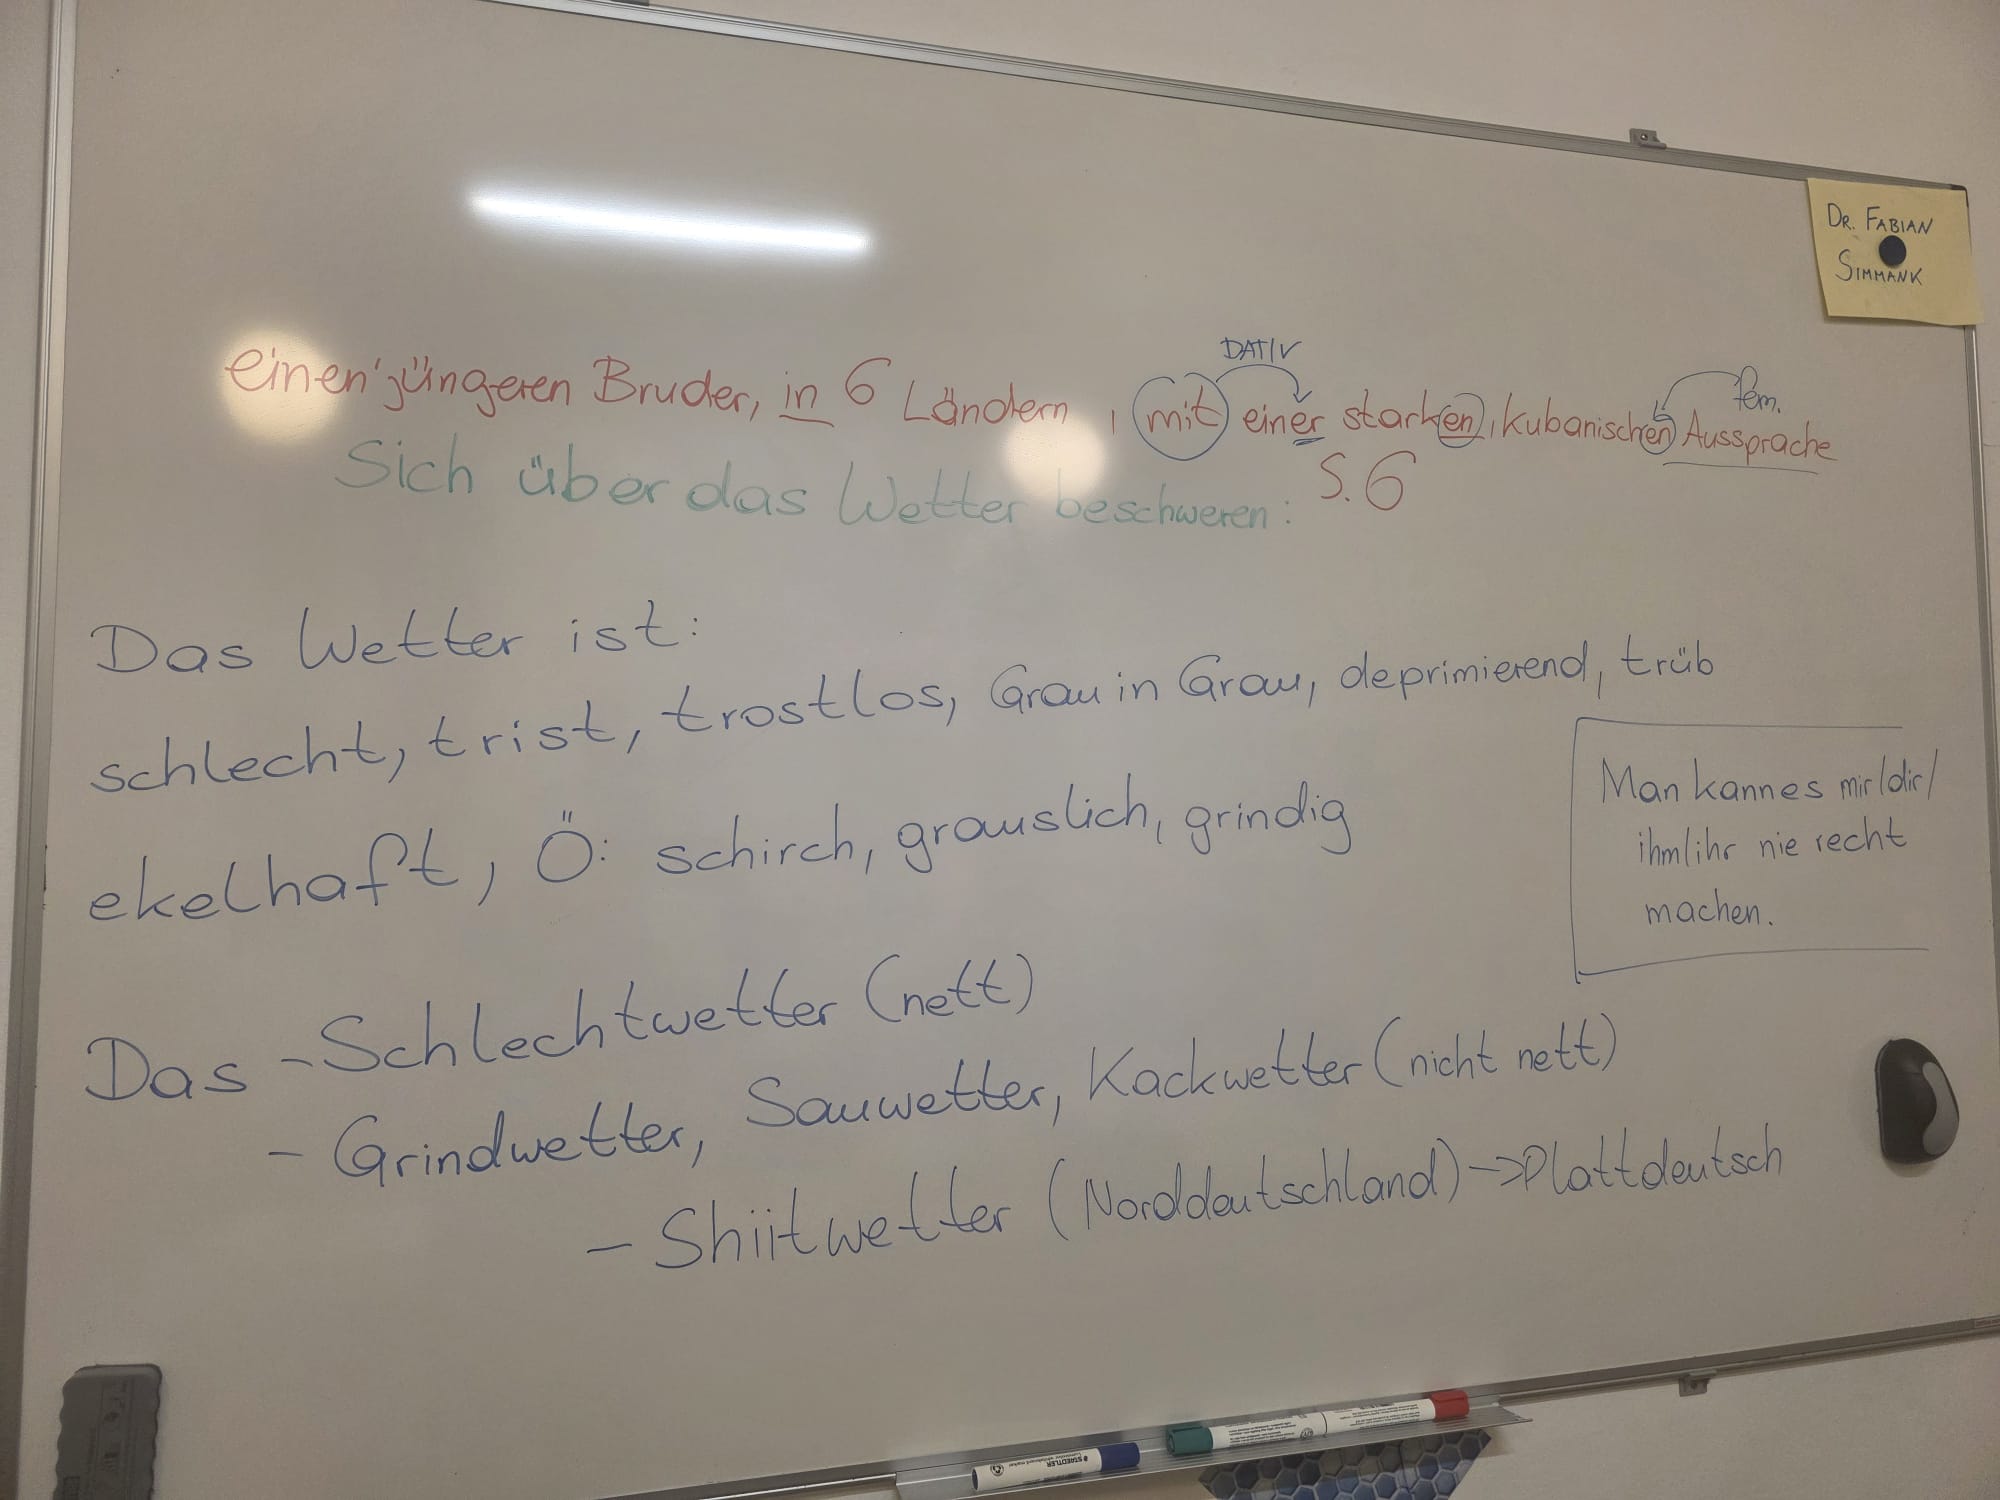 DR. FABIAN
SIMMANK
DATIV
fem.
einen jüngeren Bruder, in 6 Ländern, mit einer starken, kubanischen Aussprache
S. 6
Sich über das Wetter beschweren:
Das Wetter ist:
schlecht, trist, trostlos, Grau in Grau, deprimierend, trüb
ekelhaft, Ö: schirch, grauslich, grindig
Man kann es mir/dir/
ihm/ihr nie recht
machen.
Das - Schlechtwetter (nett)
- Grindwetter, Sauwetter, Kackwetter (nicht nett)
- Shiitwetter (Norddeutschland) -> Plattdeutsch
STAEDTLER